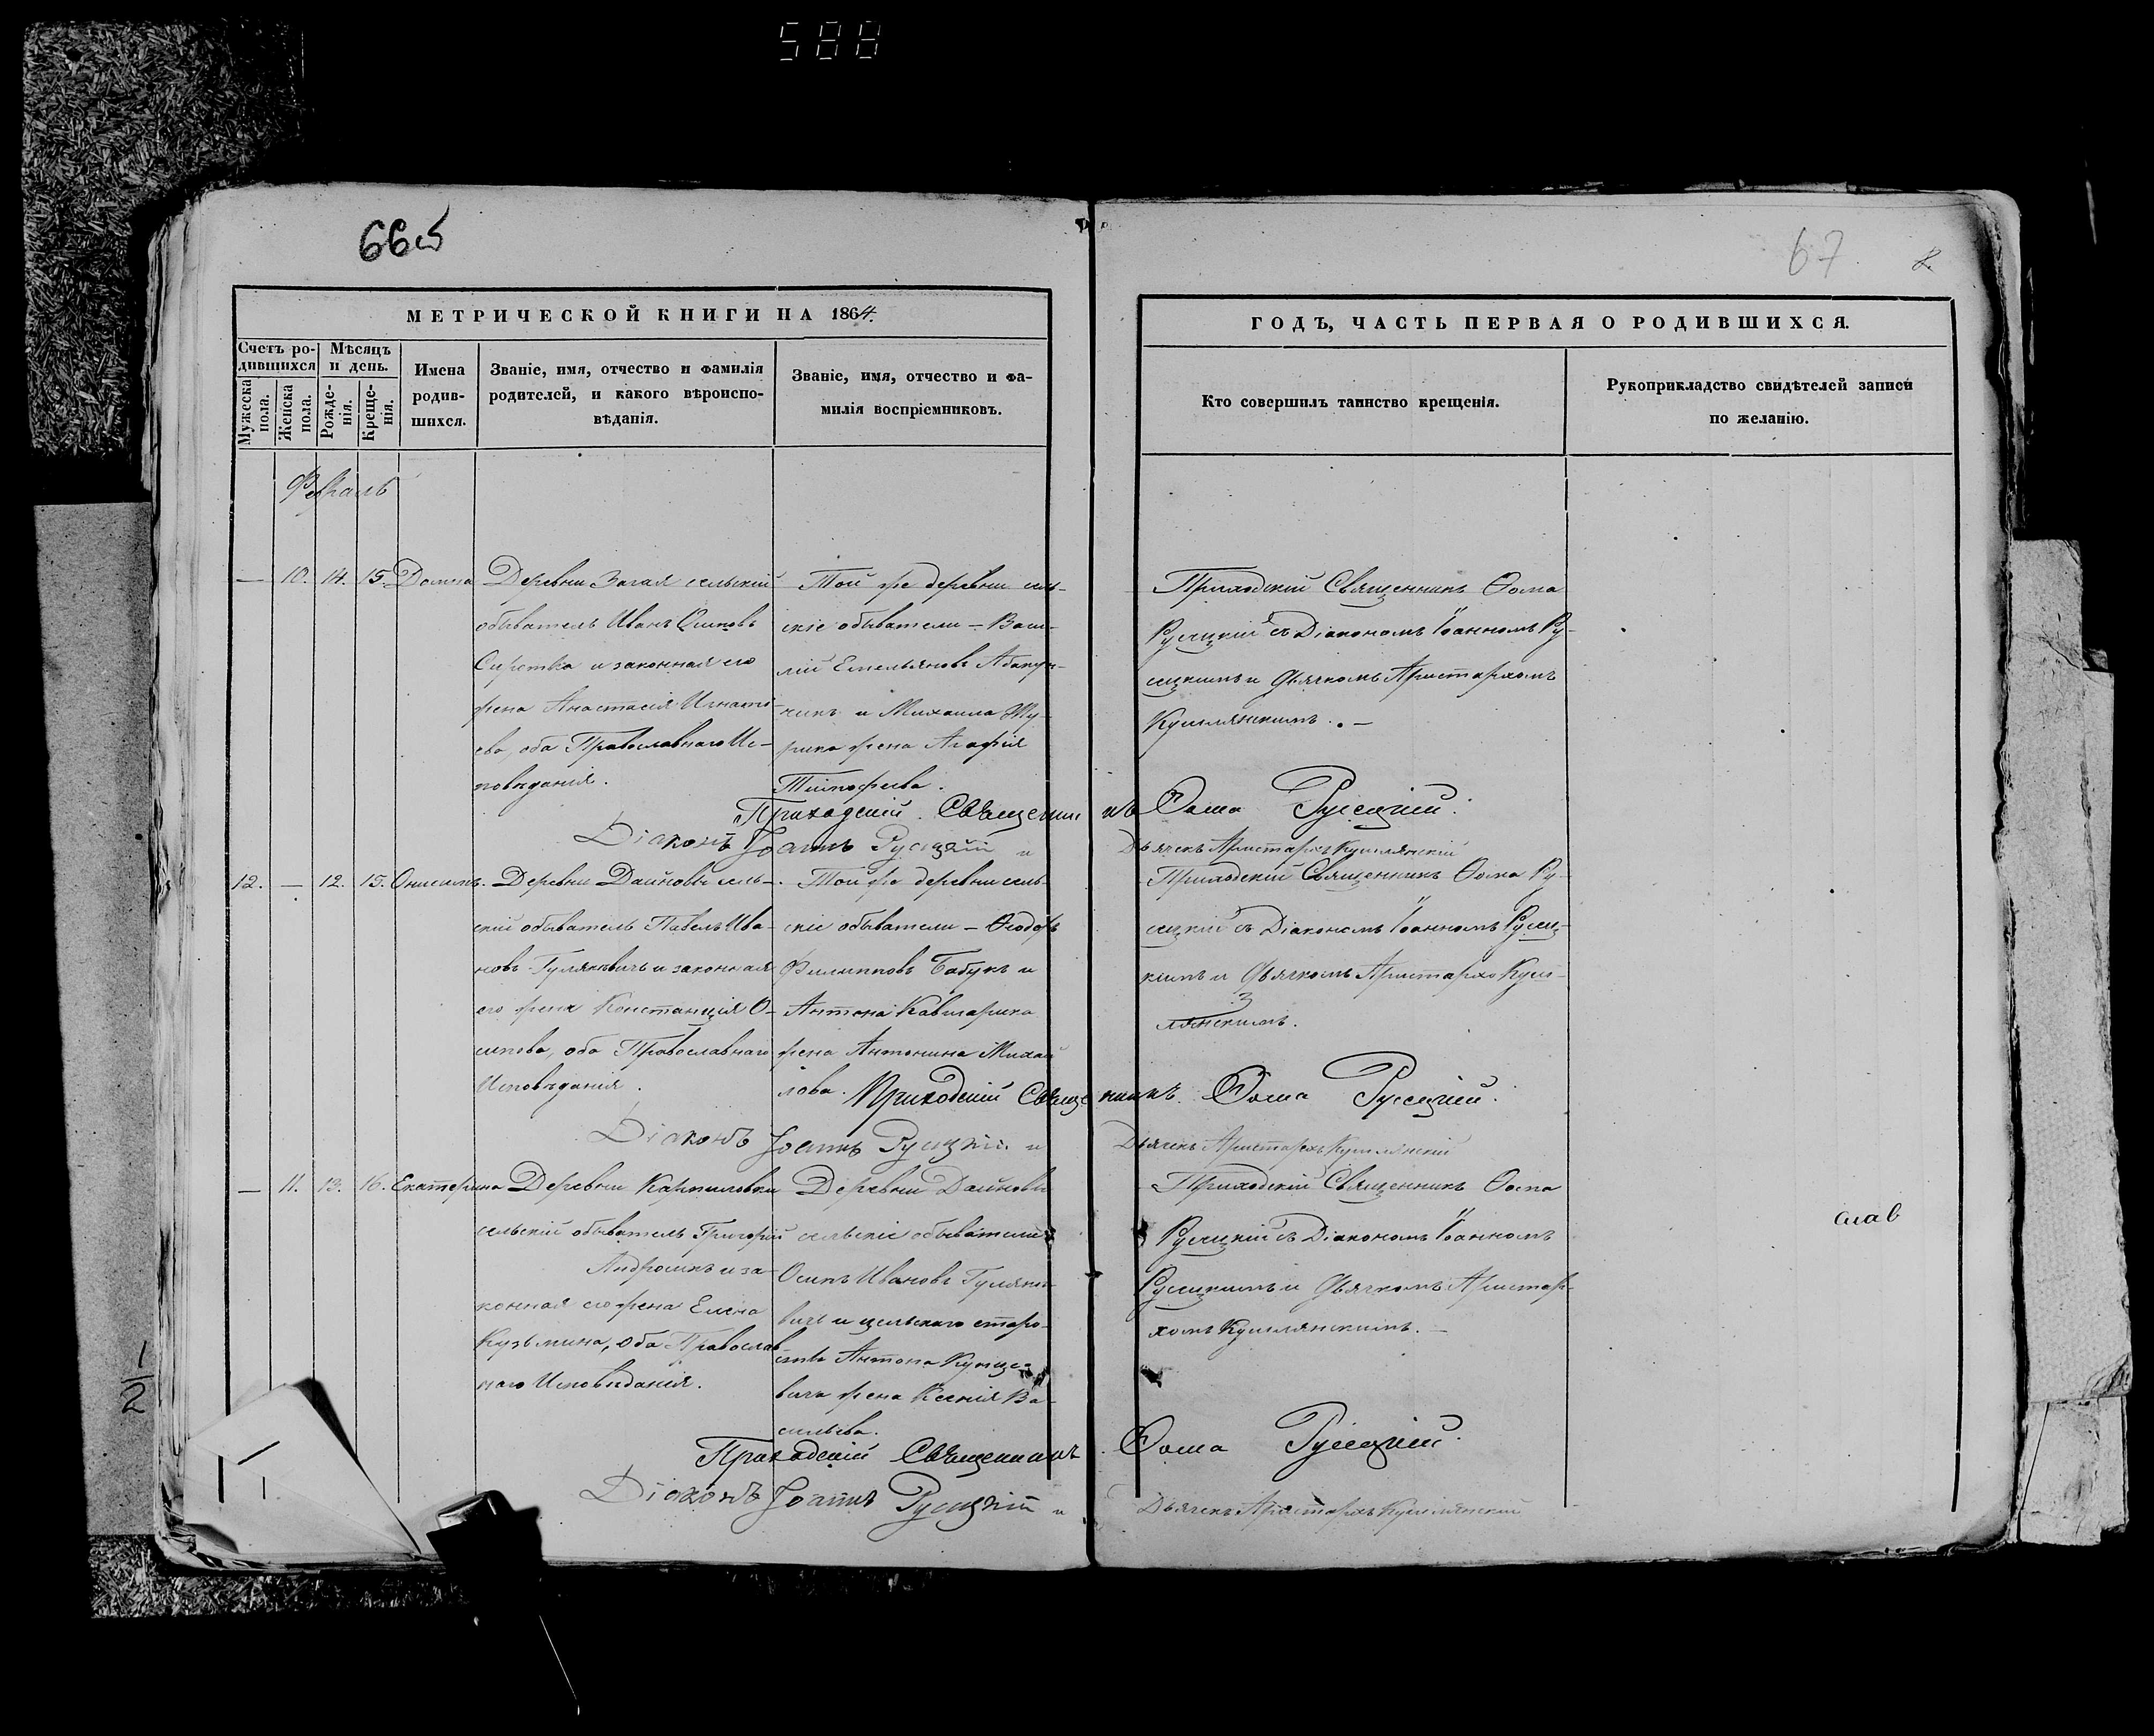 588
66об
67
8.
МЕТРИЧЕСКОЙ КНИГИ НА 1864.
Счетъ ро-
дившихся
Мѣсяцъ
и день.
Мужеска
пола.
Женска
пола.
Рожде-
нія.
Креще-
нія.
Имена
родив-
шихся.
Званіе, имя, отчество и фамилія
родителей, и какого вѣроиспо-
вѣданія.
Званіе, имя, отчество и фа-
милія воспріемниковъ.
ГОДЪ, ЧАСТЬ ПЕРВАЯ О РОДИВШИХСЯ.
Кто совершилъ таинство крещенія.
Рукоприкладство свидѣтелей записи
по желанію.
Февраль
— 10. 14. 15. Домна
Деревни сельскій
обыватель Иванъ Осиповъ
Сиротка и законная его
жена Анастасія Игнать-
ева, оба Православнаго Ис-
повѣданія.
Той же деревни сель-
скіе обыватели – Васи-
лій Емельяновъ
и Михаила
жена Агафія
Тимофеева.
Приходскій Священникъ Фома
Русецкій съ Діакономъ Іоанномъ Ру-
сецкимъ и Дьячкомъ Аристархомъ
. —
Приходскій Священникъ Фома Русецкій.
Діаконъ Іоаннъ Русецкій и Дьячекъ Аристархъ
12. — 12. 15. Онисимъ.
Деревни Дайновы сель-
скій обыватель Павелъ Ива-
новъ Гуляневичъ и законная
его жена Констанція О-
сипова, оба Православнаго
Исповѣданія.
Той же деревни сель-
скіе обыватели – Ѳеодоръ
Филипповъ Бабукъ и
Антона
жена Антонина Михай
лова.
Приходскій Священникъ Фома Ру-
сецкій съ Діакономъ Іоанномъ Русец-
кимъ и Дьячкомъ Аристархо
3
Приходскій Священникъ. Фома Русецкій.
Діаконъ Іоаннъ Русецкій и Дьячекъ Аристархъ
— 11. 13. 16. Екатерина
Деревни Карпиловки
сельскій обыватель Григорій
и за-
конная его жена Елена
Кузьмина, оба Православ
наго Исповѣданія.
Деревни Дайновы
сельскіе обыватели
Осипъ Ивановъ Гуляне-
вичъ и сельскаго старо-
сты Антона
вича жена Ксенія Ва-
сильева.
Приходскій Священникъ Фома
Русецкій съ Діакономъ Іоанномъ
Русецкимъ и Дьячкомъ Аристар-
хомъ
слав
Приходскій Священникъ. Фома Русецкій.
Діаконъ Іоаннъ Русецкій и Дьячекъ Аристархъ
1
2